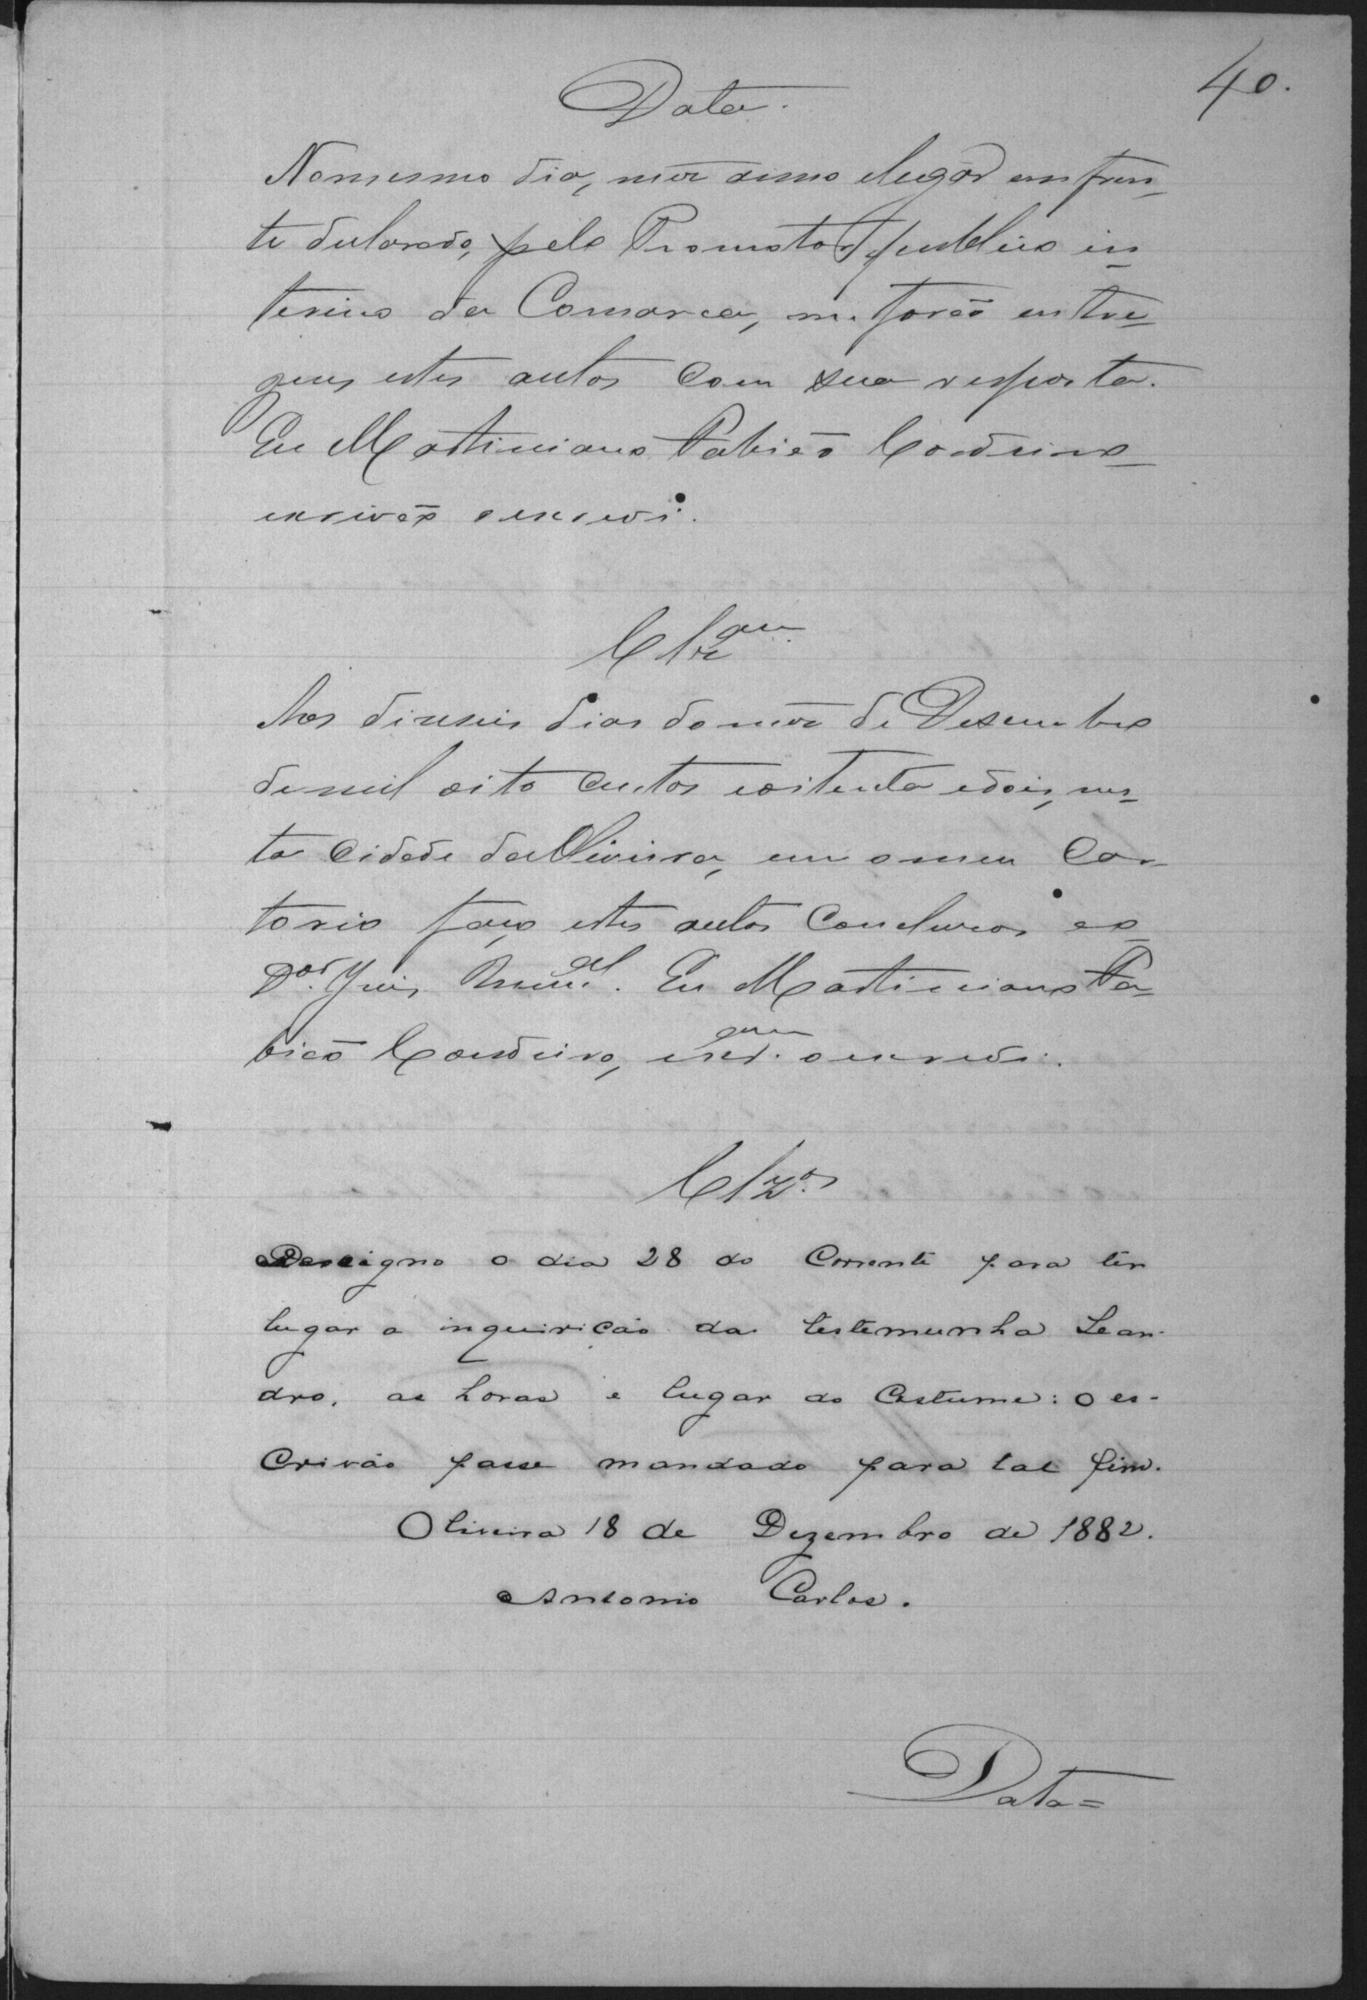 40.
Data.
Nomesmo dia, mez anno elugar emfren-
te declarado, pelo Promotor publico in-
terino da Comarca, me forão entre-
gues estes autos com sua resposta.
Eu Martiniano Fabião Cordeiro
escrivão o escrevi.
Clz
Aos deseseis dias domez de Desembro
demil oito centos eoitenta edois, nes-
ta Cidade deOliveira, em o meu Car-
torio faço estes autos Conclusos ao
Dor. Juis Munal. Eu Martiniano Fa-
bião Cordeiro, escram o escrevi.
Clzos
Desígno o dia 28 do Corrente para ter
lugar a inquirição da testemunha Lean-
dro, as horas e lugar do Costume: O es-
crivão passe mandado para tal fim.
Oliveira 18 de Dezembro de 1882.
Antonio Carlos.
Data=